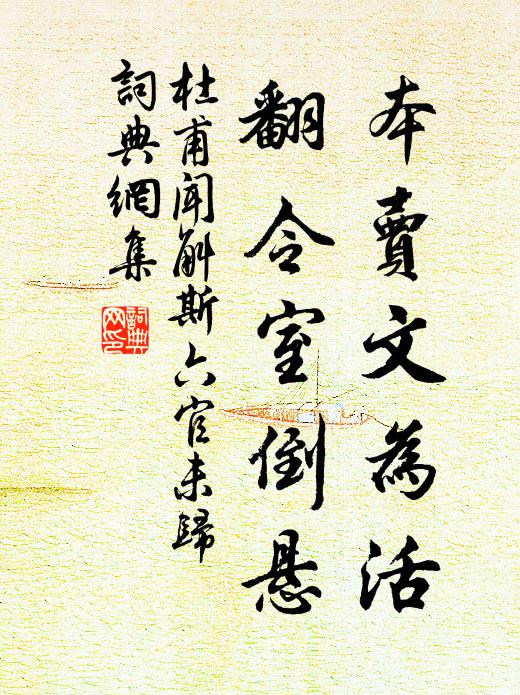 本賣文為活
翻令室倒悬
杜甫聞斛斯六官未歸
詞典網集
詞典網印